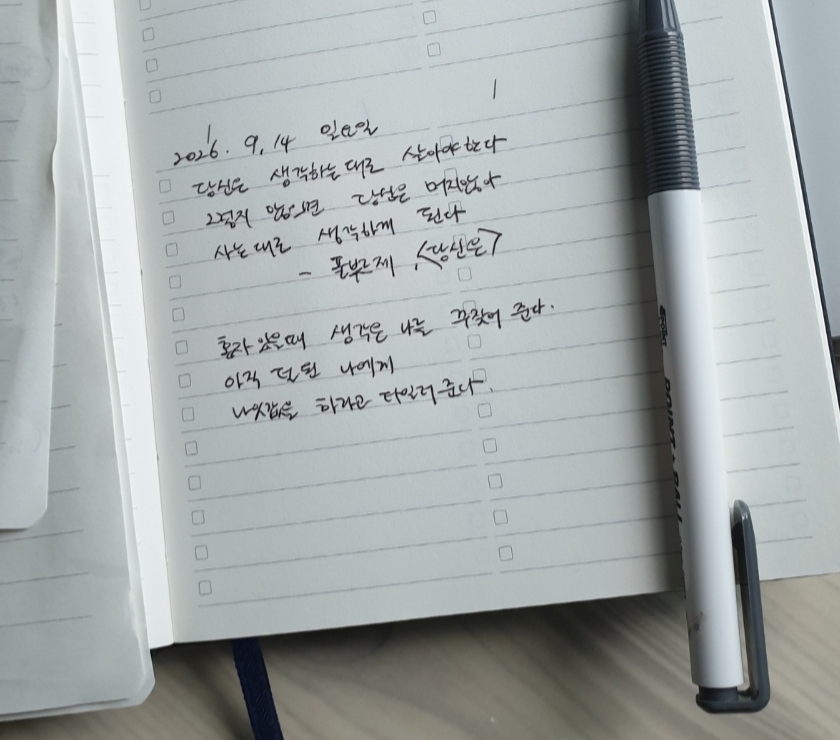 2026. 9. 14 일요일
당신은 생각하는대로 살아야한다
그렇지 않으면 당신은 머지않아
사는대로 생각하게 된다
- 폴부르제, <당신은>
혼자 있을때 생각은 나를 꾸짖어 준다.
아직 덜 된 나에게
나잇값을 하라고 타일러 준다.